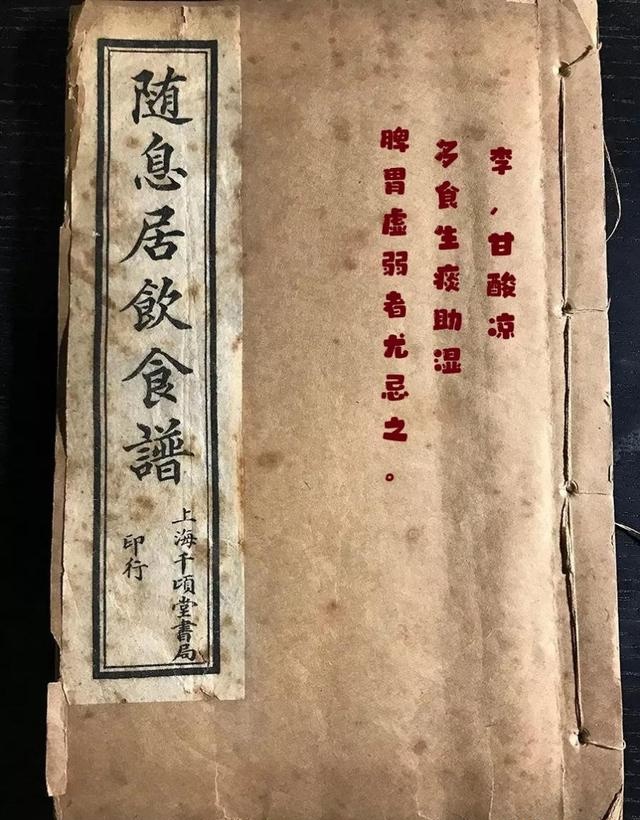 李，甘酸凉
多食生痰助湿
脾胃虚弱者尤忌之。
随息居飲食譜
上海千頃堂書局
印行